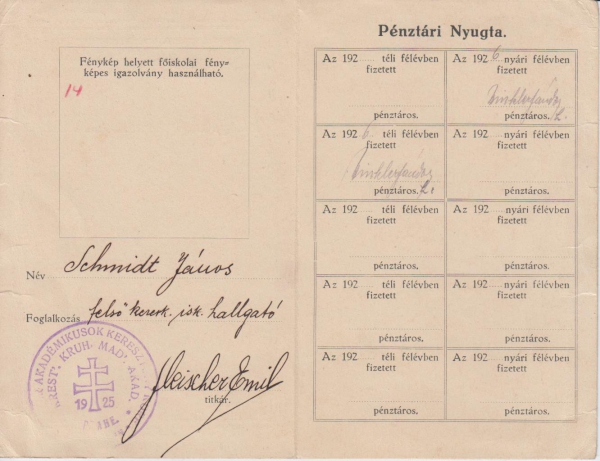 Fénykép helyett főiskolai fény=
képes igazolvány használható.
14
Név Schmidt János
Foglalkozás felső keresk. isk. hallgató
AKADÉMIKUSOK
KRUH. MAĎ. AKAD.
1925
Fleischer Emil
titkár.
Pénztári Nyugta.
Az 192 téli félévben
fizetett
pénztáros.
Az 1926 nyári félévben
fizetett
Winkler Sándor
pénztáros.
Az 1926 téli félévben
fizetett
Winkler Sándor
pénztáros.
Az 192 nyári félévben
fizetett
pénztáros.
Az 192 téli félévben
fizetett
pénztáros.
Az 192 nyári félévben
fizetett
pénztáros.
Az 192 téli félévben
fizetett
pénztáros.
Az 192 nyári félévben
fizetett
pénztáros.
Az 192 téli félévben
fizetett
pénztáros.
Az 192 nyári félévben
fizetett
pénztáros.